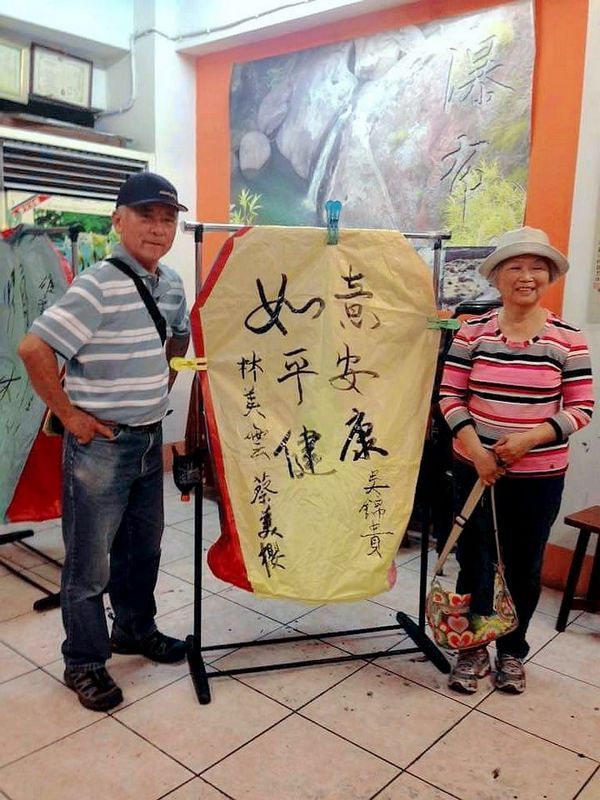 瀑布
如意
平安
健康
林美雲 蔡美櫻
吳錦貴